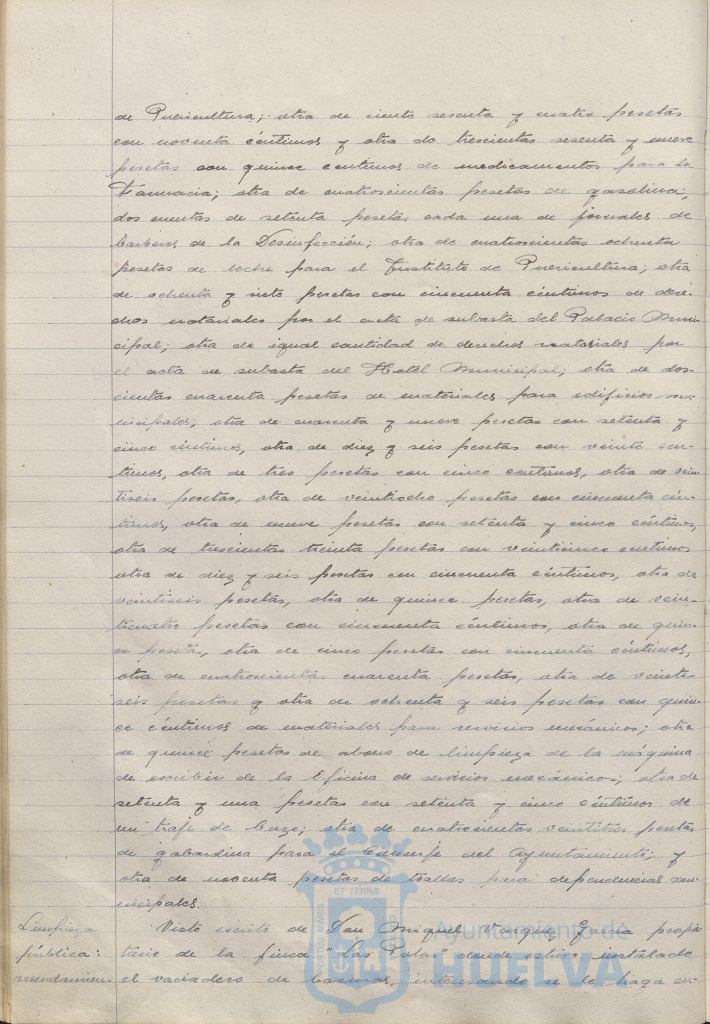 de Puericultura; otra de ciento sesenta y cuatro pesetas
con noventa céntimos y otra de trescientas sesenta y nueve
pesetas con quince centimos de medicamentos para la
Farmacia; otra de cuatrocientas pesetas de gasolina;
dos cuentas de setenta pesetas cada una de jornales de
barberos de la Desinfección; otra de cuatrocientas ochenta
pesetas de leche para el Instituto de Puericultura; otra
de ochenta y siete pesetas con cincuenta céntimos de dere-
chos notariales por el acta de subasta del Palacio Muni-
cipal; otra de igual cantidad de derechos notariales por
el acta de subasta del Hotel Municipal; otra de dos-
cientas cuarenta pesetas de materiales para edificios mu-
nicipales; otra de cuarenta y nueve pesetas con setenta y
cinco céntimos, otra de diez y seis pesetas con veinte cen-
timos, otra de tres pesetas con cinco centimos, otra de vein-
tiseis pesetas, otra de veintiocho pesetas con cincuenta cén-
timos, otra de nueve pesetas con setenta y cinco céntimos,
otra de trescientas treinta pesetas con veinticinco centimos
otra de diez y seis pesetas con cincuenta céntimos, otra de
veintiseis pesetas, otra de quince pesetas, otra de vein-
ticuatro pesetas con cincuenta céntimos, otra de quin-
ce pesetas, otra de cinco pesetas con cincuenta céntimos,
otra de cuatrocientas cuarenta pesetas, otra de veinti-
seis pesetas y otra de ochenta y seis pesetas con quin-
ce céntimos de materiales para servicios mecánicos; otra
de quince pesetas de abono de limpieza de la máquina
de escribir de la Oficina de servicios mecánicos; otra de
setenta y una pesetas con setenta y cinco céntimos de
un traje de buzo; otra de cuatrocientas veintitres pesetas
de gabardina para el Conserje del Ayuntamiento; y
otra de noventa pesetas de toallas para dependencias mu-
nicipales.
Limpieza
pública:
arrendamien-
Visto escrito de Don Miguel Vazquez Garcia propie-
tario de la finca "Las Potas" donde estuvo instalado
el vaciadero de basuras, interesando se le haga en-
ET TERRA
Ayuntamiento de
HUELVA